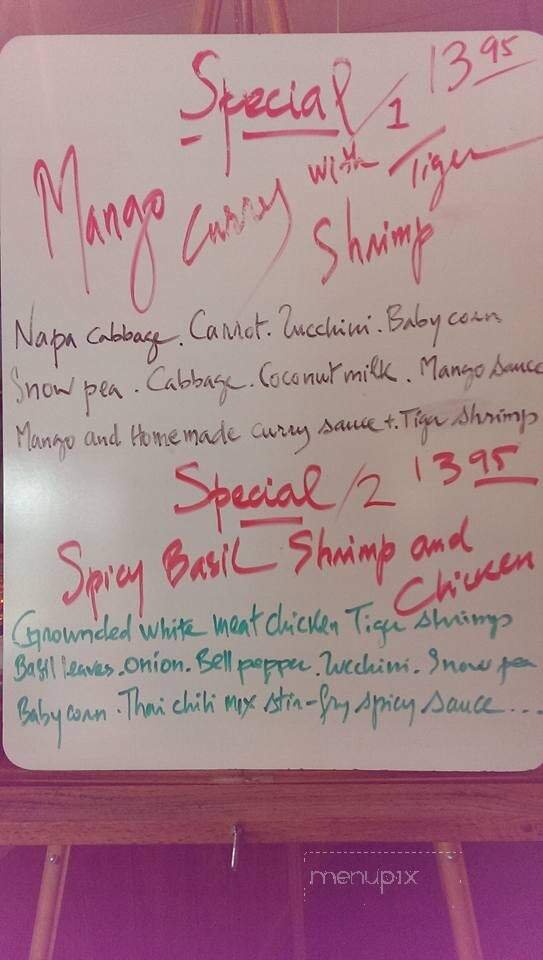 Special / 1 13 95
Mango Curry with Tiger
Shrimp
Napa cabbage. Carrot. Zucchini. Baby corn
Snow pea. Cabbage. Coconut milk. Mango sauce
Mango and Homemade curry sauce +. Tiger shrimp
Special / 2 13 95
Spicy Basil Shrimp and
Chicken
Grownded white meat chicken Tiger shrimps
Basil leaves. onion. Bell pepper. Zucchini. Snow pea
Baby corn. Thai chili mix stir-fry spicy sauce...
menupix